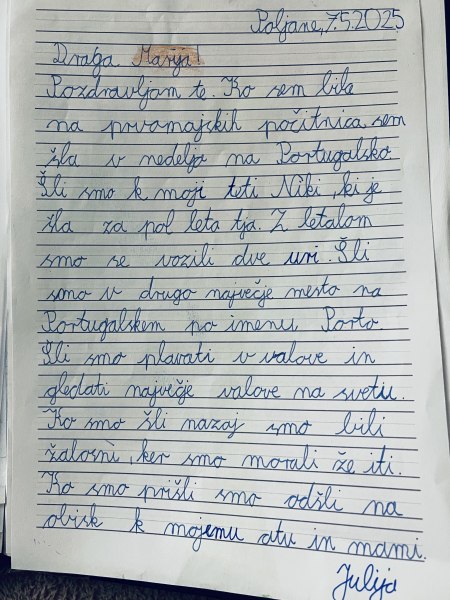 Poljane, 7.5.2025
Draga Marija!
Pozdravljam te. Ko sem bila
na prvamajskih počitnica sem
šla v nedelja na Portugalsko.
Šli smo k moji teti Niki, ki je
šla za pol leta tja. Z letalom
smo se vozili dve uri. Šli
smo v drugo največje mesto na
Portugalskem po imenu Porto.
Šli smo plavati v valove in
gledati največje valove na svetu.
Ko smo šli nazaj smo bili
žalosni, ker smo morali že iti.
Ko smo prišli smo odšli na
obisk k mojemu atu in mami.
Julija